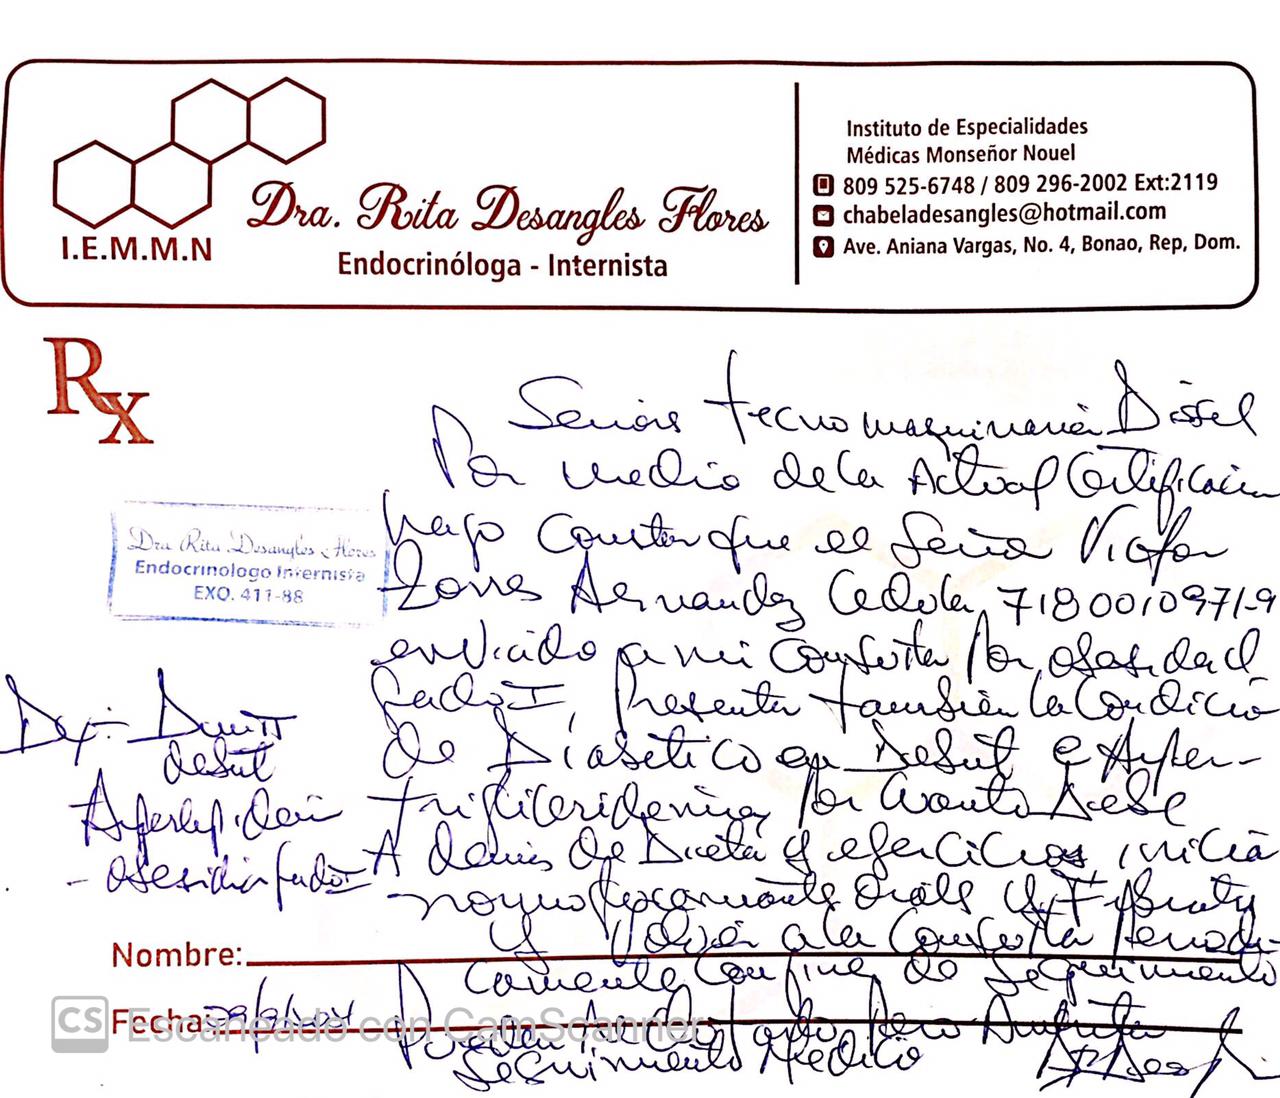 I.E.M.M.N
Dra. Rita Desangles Flores
Endocrinóloga - Internista
Instituto de Especialidades
Médicas Monseñor Nouel
809 525-6748 / 809 296-2002 Ext:2119
chabeladesangles@hotmail.com
Ave. Aniana Vargas, No. 4, Bonao, Rep, Dom.
Rx
Dra Rita Desangles Flores
Endocrinologo Internista
EXQ. 411-88
Señores Tecnomaquinaria Dissel
Por medio de la Actual Certificación
hago constar que el Señor Victor
Torres Hernandez Cedula
enviado a mi Consulta Por obesidad
Grado I, Presenta también la Condició
de Diabético en Debut e Hyper-
trigliceridemia, Por cuanto debe
Además de Dieta y ejercicios, inicia
orales y Fibratos
y volver a la Consulta Periodi-
camente con fines de Seguimiento
Seguimiento Medico
Dx:- Dm II
debut
Hyperlipidemia
- obesidad grado I
Nombre:
Fecha:
CS Escaneado con CamScanner